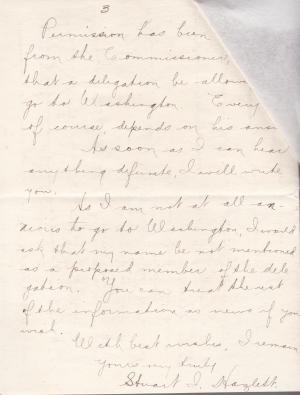 3
Permission has been
from the Commissioner,
that a delegation be allow
go to Washington. Every
of course, depends on his ans
As soon as I can hear
anything definite, I will write
you.
As I am not at all an-
xious to go to Washington, I would
ask that my name be not mentioned
as a proposed member of the dele
gation. You can treat the rest
of the information as news if you
wish.
With best wishes, I remain
Yours very truly
Stuart I. Hazlett.